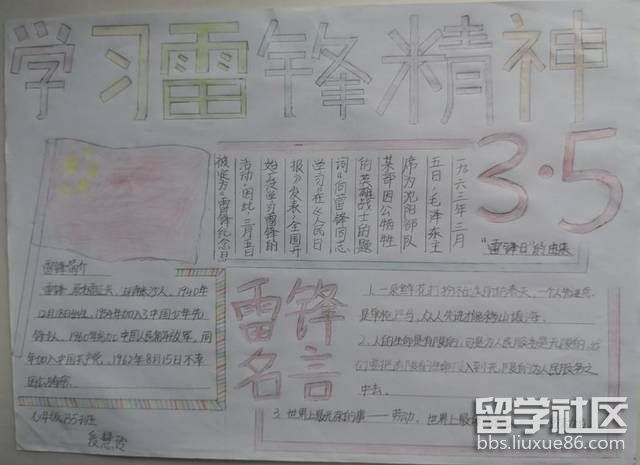 学习雷锋精神
3·5
"雷锋日"的由来
一九六三年三月
五日,毛泽东主
席为沈阳部队
某部因公牺牲
的英雄战士的题
词"向雷锋同志
学习"在《人民日
报》发表,全国开
始了学习雷锋的
活动,因此,三月五日
被定为"雷锋纪念日
雷锋简介
雷锋
1940年
12月18日出生,
中国少年先
锋队,1960年参加中国人民解放军,同
年加入中国共产党,1962年8月15日不幸
因公殉职。
雷锋名言
1.一朵鲜花打扮不出美丽的春天,一个人先进总
是单枪匹马,众人先进才能移山填海。
2、人的生命是有限的,可是为人民服务是无限的,
我要把有限的生命投入到无限的为人民服务之
中去。
3.世界上最光荣的事——劳动。世界上最
留学社区
bbs.liuxue86.com